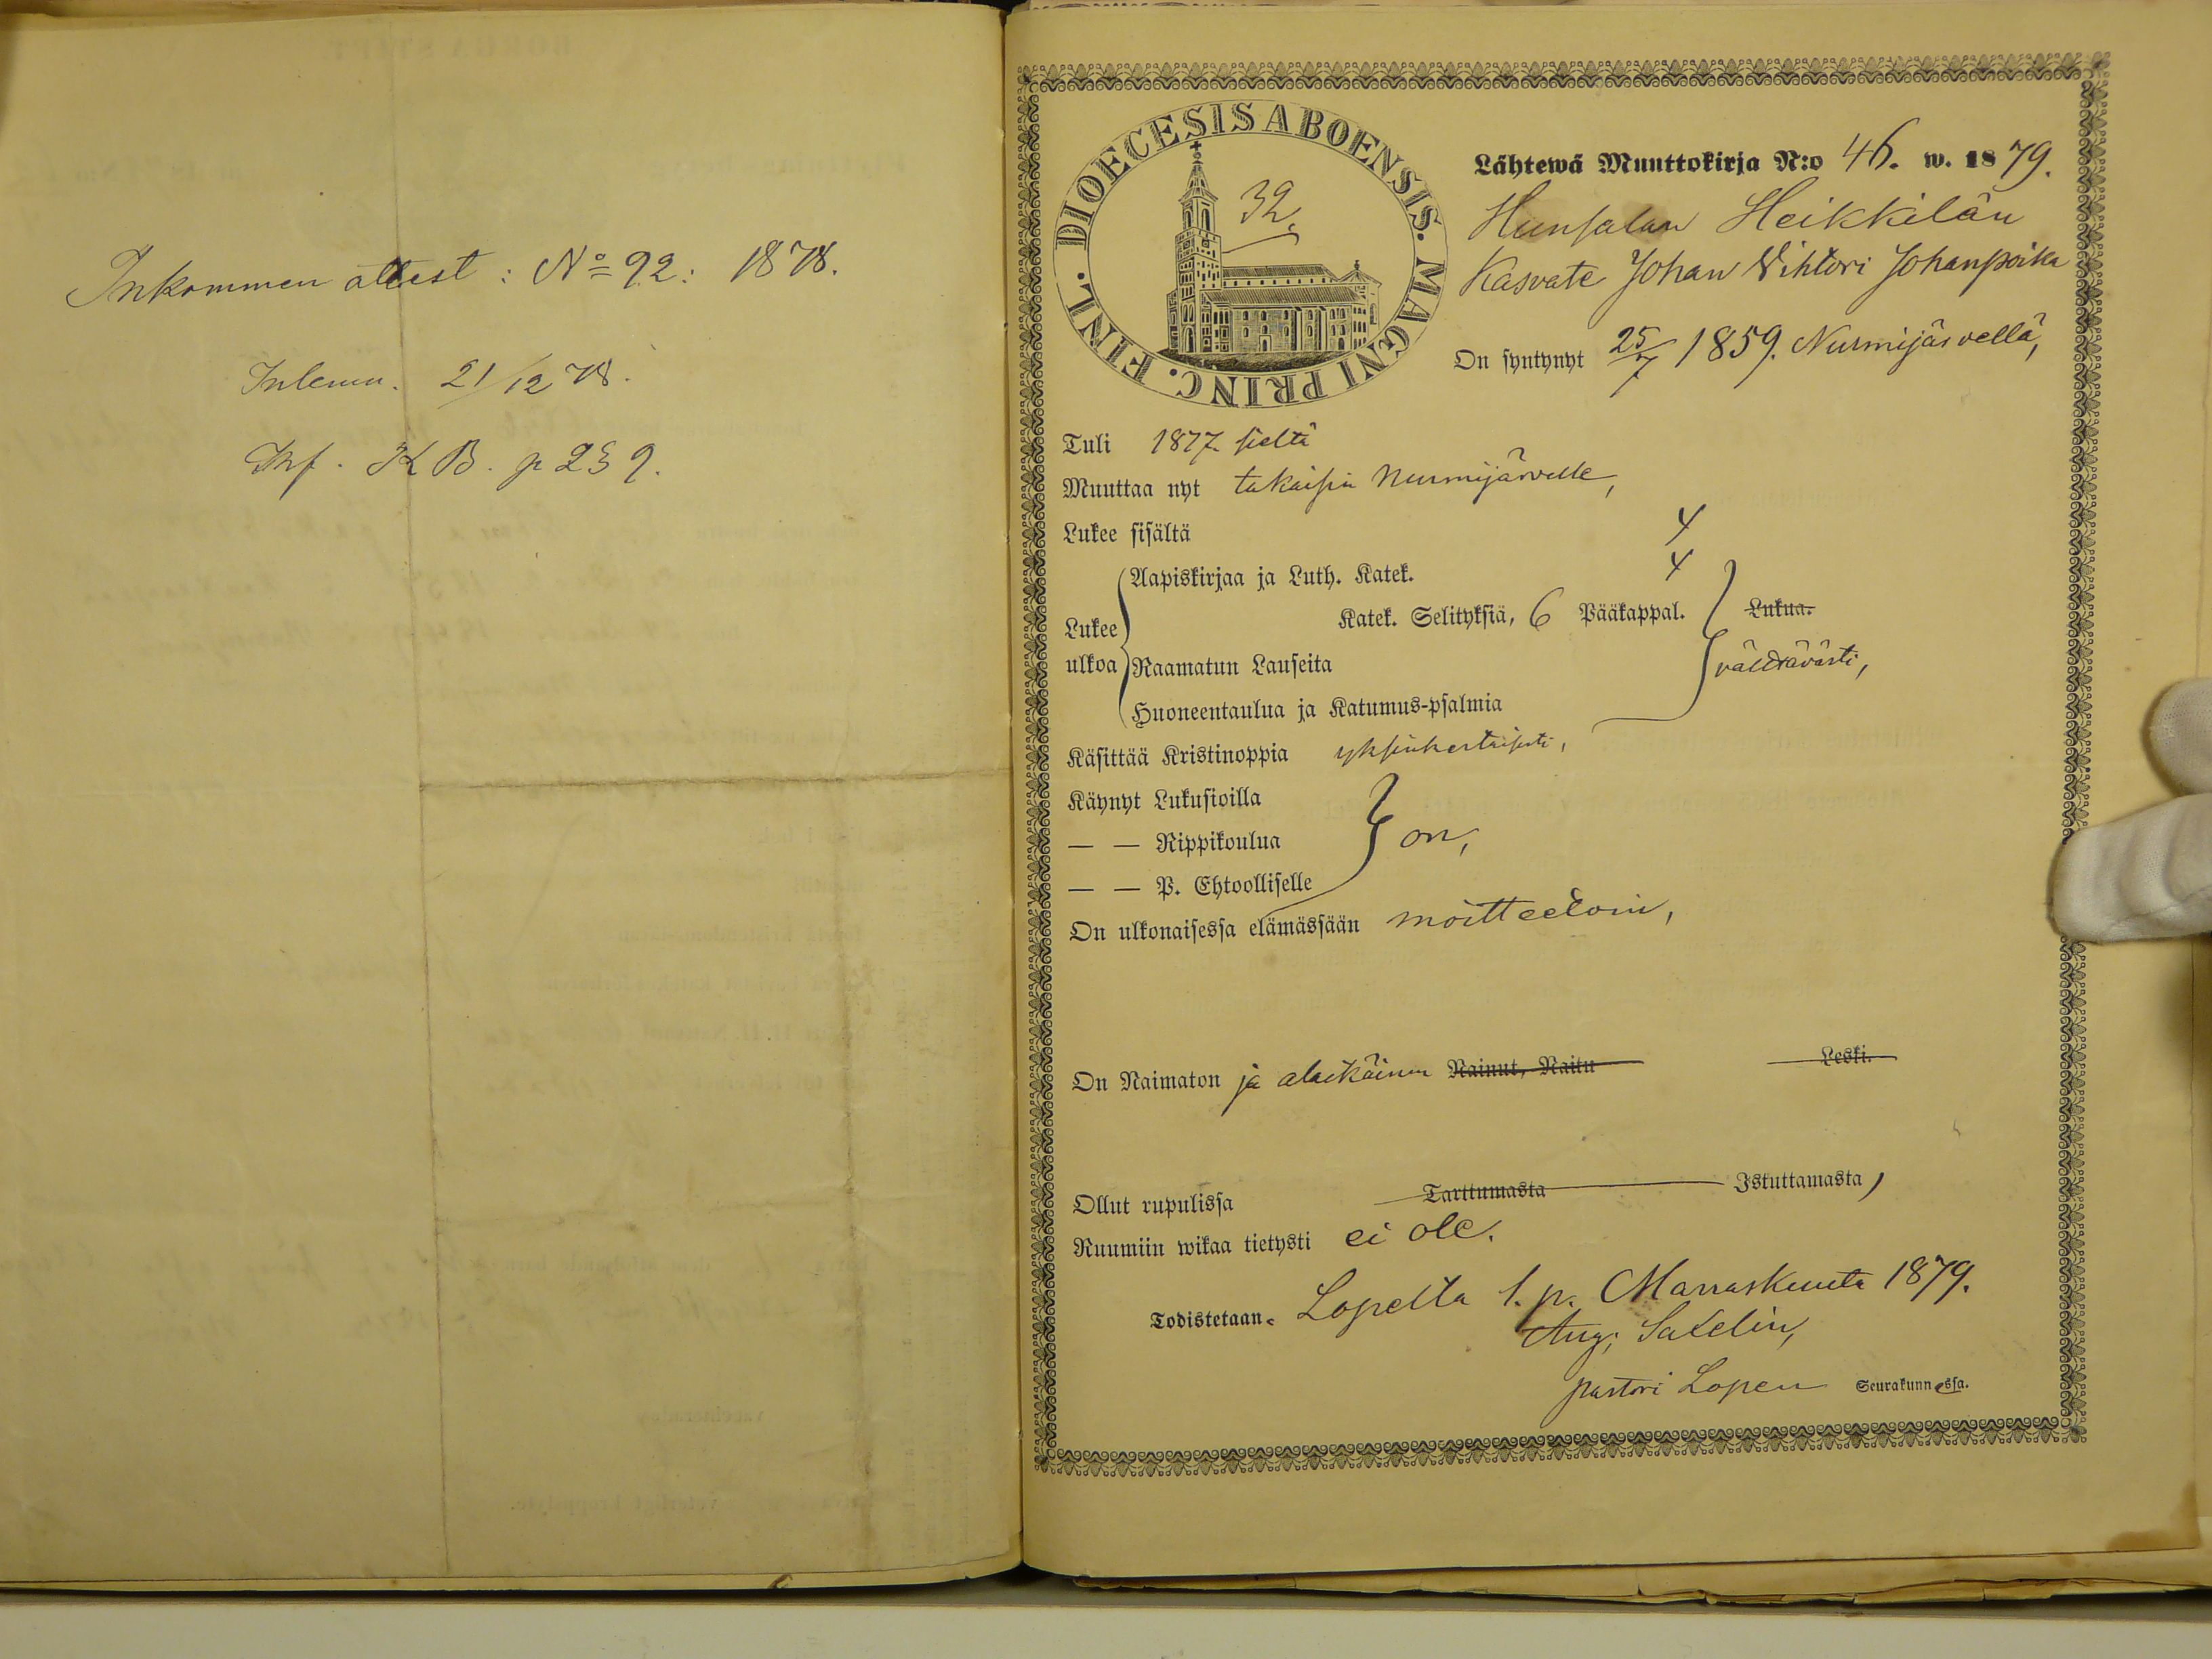 Inkommen attest: No 92: 1878.
Inlemn. 21/12 78.
Inf. KB. p 239.
DIOECESIS ABOENSIS. MAGNI PRINC. FINL.
32.
Lähtewä Muuttokirja N:o 46. w. 1879.
Hunsalan Heikkilän
Kasvate Johan Vihtori Johanpoika
On syntynyt 25/7 1859. Nurmijärvellä,
Tuli 1877 sieltä
Muuttaa nyt takaisin Nurmijärvelle,
Lukee sisältä
Lukee ulkoa
Aapiskirjaa ja Luth. Katek.
Katek. Selityksiä, 6 Pääkappal. Lukua.
Raamatun Lauseita välttävästi,
Huoneentaulua ja Katumus-psalmia
Käsittää Kristinoppia yksinkertaisesti,
Käynyt Lukusioilla
— — Rippikoulua on,
— — P. Ehtoolliselle
On ulkonaisessa elämässään moitteetoin,
On Naimaton ja alaikäinen Nainut, Naitu Leski.
Ollut rupulissa Tarttumasta Istuttamasta,
Ruumiin wikaa tietysti ei ole.
Todistetaan. Lopelta 1. p. Marraskuuta 1879.
Aug. Salelin,
pastori Lopen Seurakunnessa.